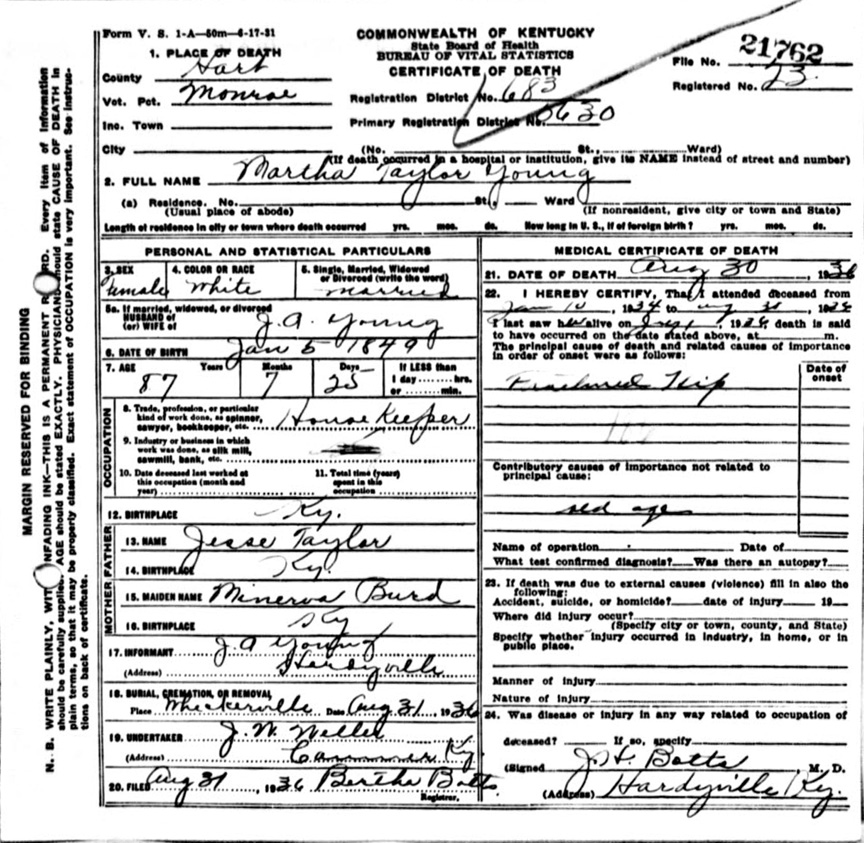 Form V. S. 1-A—50m—6-17-31
COMMONWEALTH OF KENTUCKY
State Board of Health
BUREAU OF VITAL STATISTICS
CERTIFICATE OF DEATH
File No. 21762
Registered No. 23.
1. PLACE OF DEATH
County Hart
Vot. Pct. Monroe
Inc. Town
City
Registration District No. 683
Primary Registration District No. 0630
(No. St., Ward)
(If death occurred in a hospital or institution, give its NAME instead of street and number)
2. FULL NAME Martha Taylor Young
(a) Residence. No. St., Ward
(Usual place of abode) (If nonresident, give city or town and State)
Length of residence in city or town where death occurred yrs. mos. ds. How long in U. S., if of foreign birth? yrs. mos. ds.
PERSONAL AND STATISTICAL PARTICULARS
3. SEX Female
4. COLOR OR RACE White
5. Single, Married, Widowed or Divorced (write the word) Married
5a. If married, widowed, or divorced
HUSBAND of
(or) WIFE of J. A. Young
6. DATE OF BIRTH Jan 5 1849
7. AGE Years Months Days If LESS than
87 7 25 1 day........hrs.
or........min.
OCCUPATION
8. Trade, profession, or particular kind of work done, as spinner, sawyer, bookkeeper, etc. House Keeper
9. Industry or business in which work was done, as silk mill, sawmill, bank, etc.
10. Date deceased last worked at this occupation (month and year)
11. Total time (years) spent in this occupation
12. BIRTHPLACE Ky.
FATHER
13. NAME Jesse Taylor
14. BIRTHPLACE Ky.
MOTHER
15. MAIDEN NAME Minerva Burd
16. BIRTHPLACE Ky
17. INFORMANT J. A Young
(Address) Hardyville
18. BURIAL, CREMATION, OR REMOVAL
Place Date Aug 31 1936
19. UNDERTAKER J. W.
(Address) Ky.
20. FILED Aug 31, 1936 Bertha Botts
Registrar.
MEDICAL CERTIFICATE OF DEATH
21. DATE OF DEATH Aug 30 1936
22. I HEREBY CERTIFY, That I attended deceased from
Jan 10, 1936 to Aug 30, 1936
I last saw her alive on, 1936, death is said
to have occurred on the date stated above, at m.
The principal cause of death and related causes of importance
in order of onset were as follows:
Date of onset
Fractured Hip
Contributory causes of importance not related to
principal cause:
old age
Name of operation Date of
What test confirmed diagnosis? Was there an autopsy?
23. If death was due to external causes (violence) fill in also the
following:
Accident, suicide, or homicide? date of injury 19
Where did injury occur?
(Specify city or town, county, and State)
Specify whether injury occurred in industry, in home, or in
public place.
Manner of injury
Nature of injury
24. Was disease or injury in any way related to occupation of
deceased? If so, specify
(Signed J. H. Botts, M. D.
(Address) Hardyville Ky.
MARGIN RESERVED FOR BINDING
N. B. WRITE PLAINLY, WITH UNFADING INK—THIS IS A PERMANENT RECORD. Every item of information
should be carefully supplied. AGE should be stated EXACTLY. PHYSICIANS should state CAUSE OF DEATH in
plain terms, so that it may be properly classified. Exact statement of OCCUPATION is very important. See instruc-
tions on back of certificate.